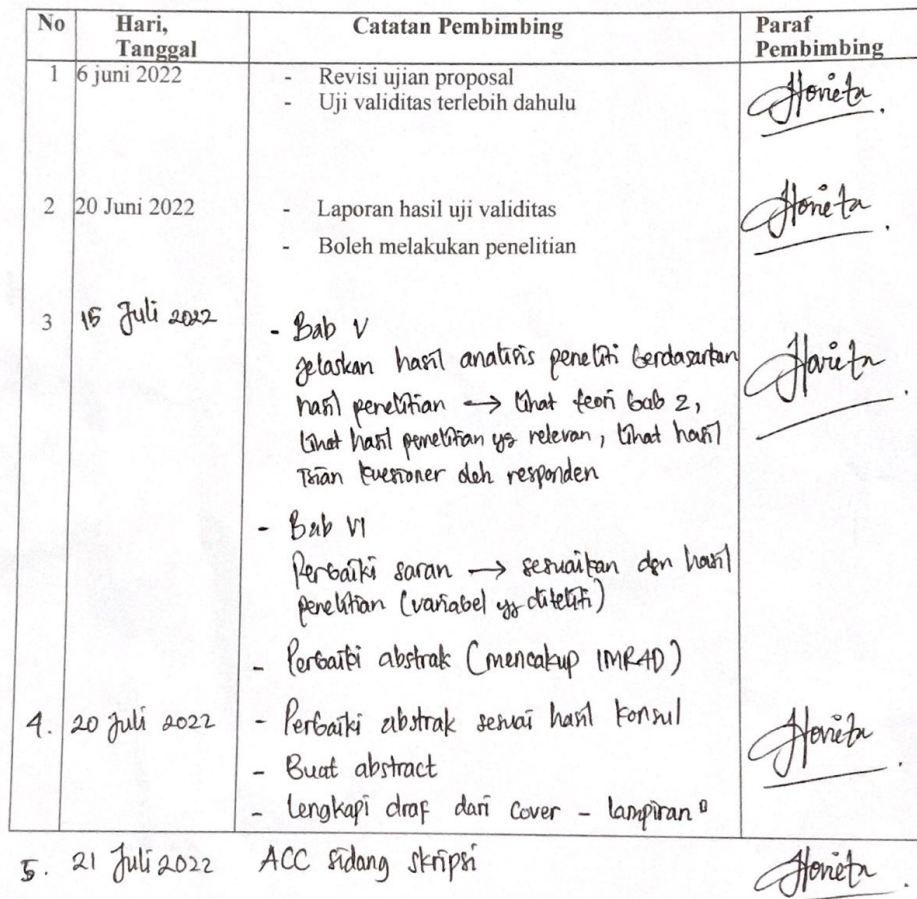 No Hari, Tanggal Catatan Pembimbing Paraf Pembimbing
1 6 juni 2022 - Revisi ujian proposal
- Uji validitas terlebih dahulu
2 20 Juni 2022 - Laporan hasil uji validitas
- Boleh melakukan penelitian
3 15 Juli 2022 - Bab V
Jelaskan hasil analisis peneliti berdasarkan
hasil penelitian → lihat teori bab 2,
lihat hasil penelitian yg relevan, lihat hasil
isian kuesioner oleh responden
- Bab VI
Perbaiki saran → sesuaikan dgn hasil
penelitian (variabel yg diteliti)
- Perbaiki abstrak (mencakup IMRAD)
4. 20 Juli 2022 - Perbaiki abstrak sesuai hasil konsul
- Buat abstract
- Lengkapi draf dari cover - lampiran
5. 21 Juli 2022 ACC sidang skripsi